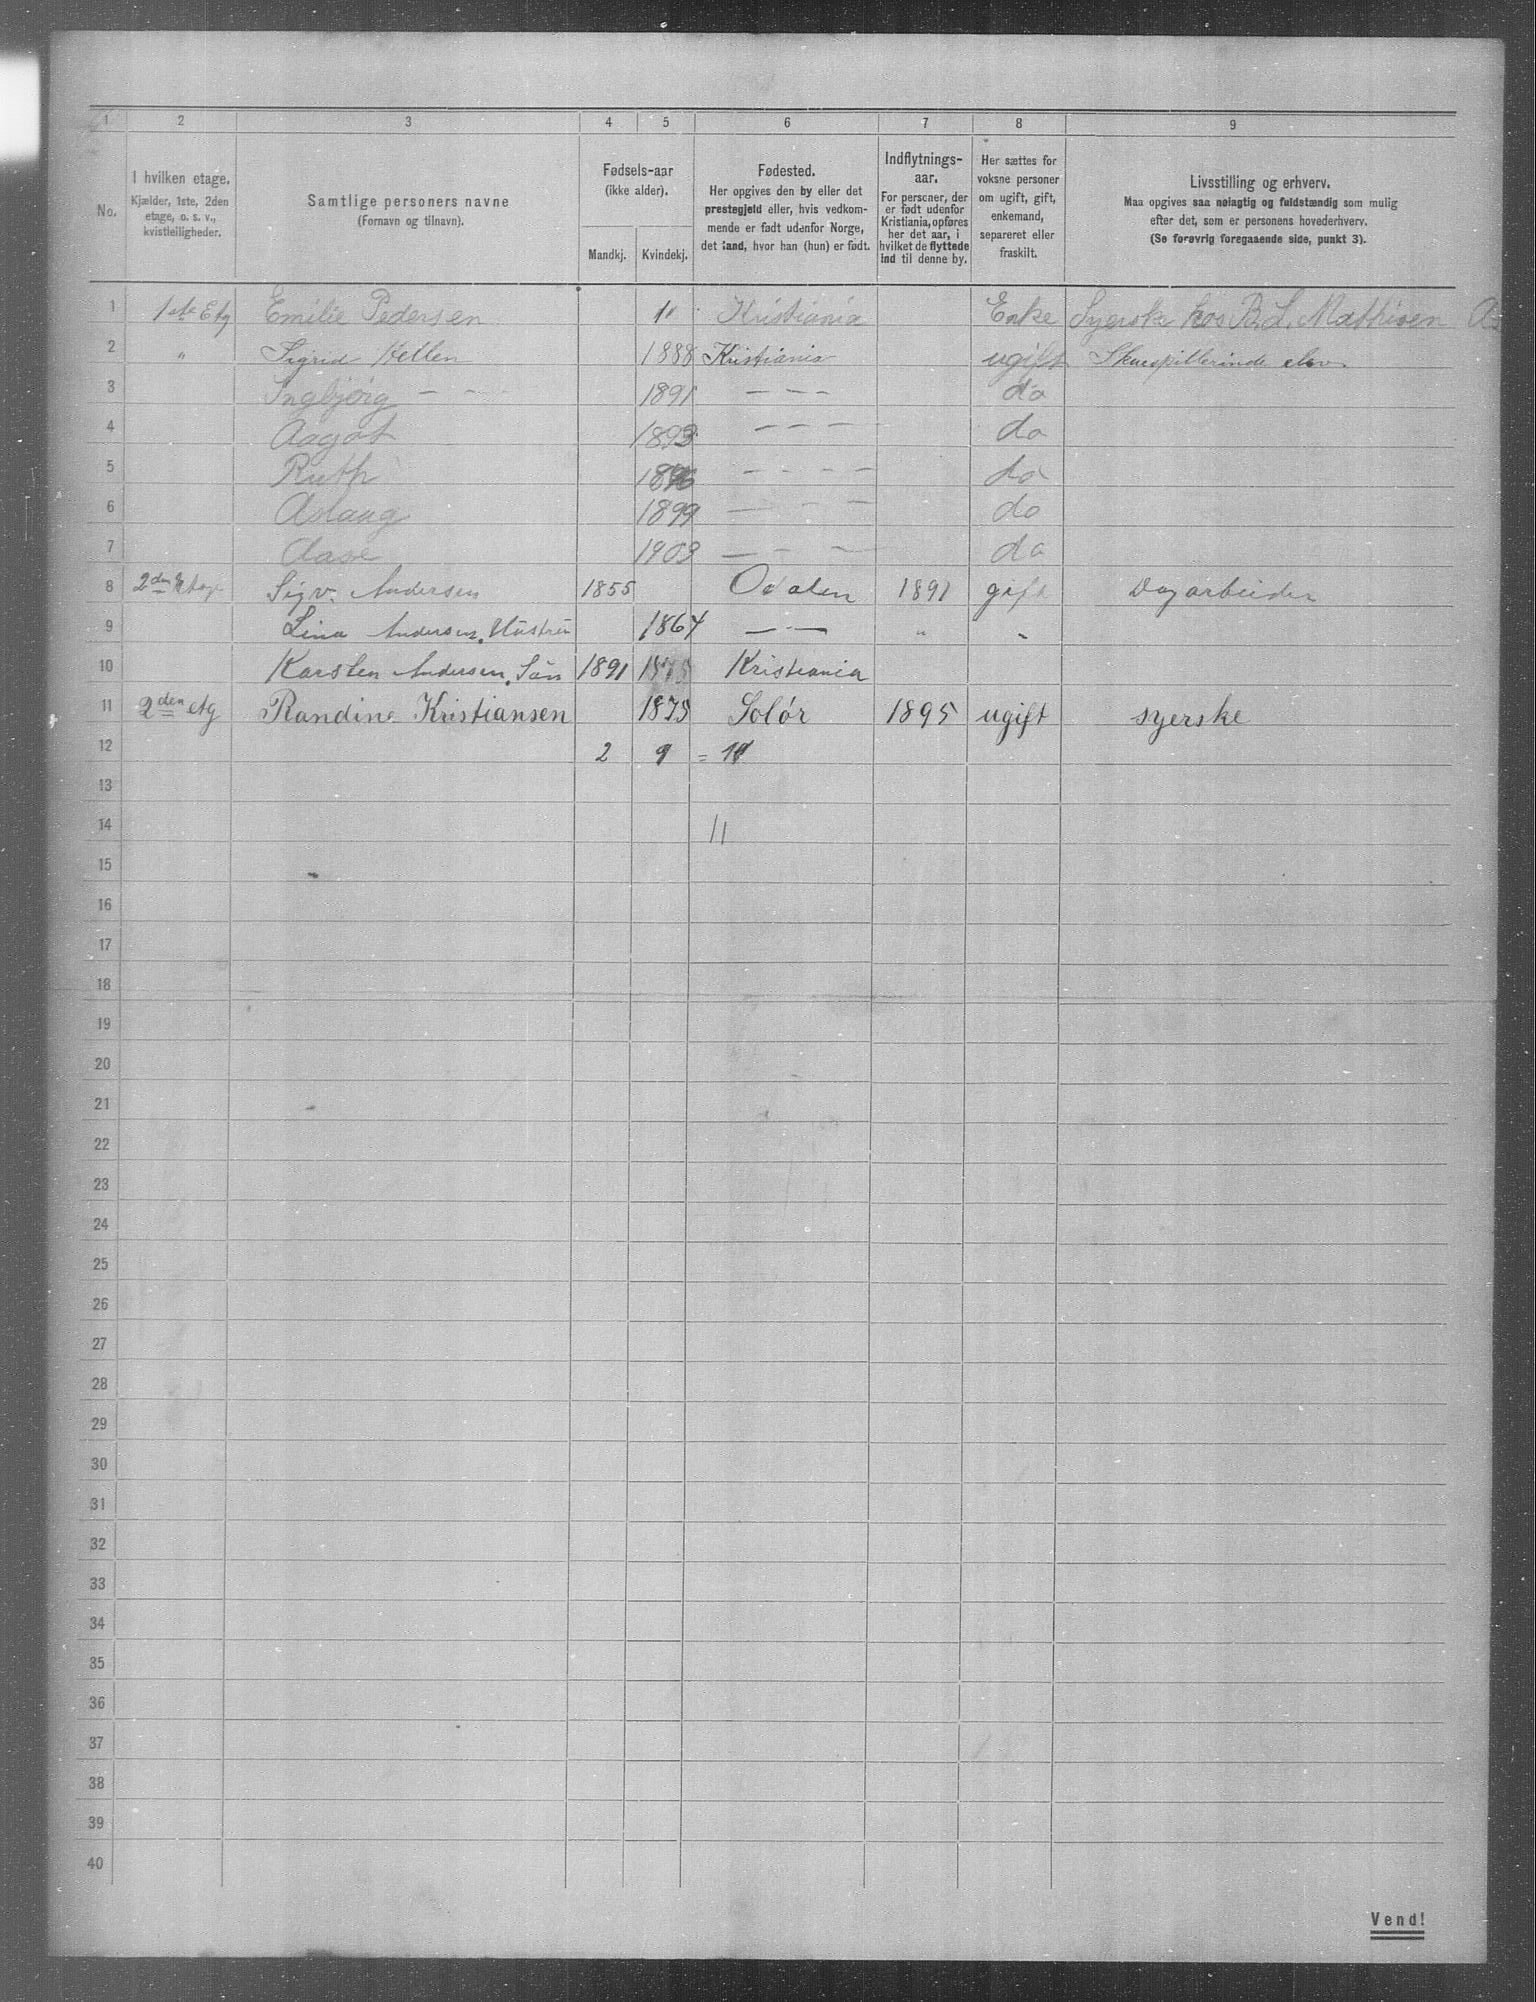 1 2 3 4 5 6 7 8 9
No.
I hvilken etage.
Kjælder, 1ste, 2den
etage, o. s. v.,
kvistleiligheder.
Samtlige personers navne
(Fornavn og tilnavn).
Fødsels-aar
(ikke alder).
Mandkj. Kvindekj.
Fødested.
Her opgives den by eller det
prestegjeld eller, hvis vedkom-
mende er født udenfor Norge,
det land, hvor han (hun) er født.
Indflytnings-
aar.
For personer, der
er født udenfor
Kristiania, opføres
her det aar, i
hvilket de flyttede
ind til denne by.
Her sættes for
voksne personer
om ugift, gift,
enkemand,
separeret eller
fraskilt.
Livsstilling og erhverv.
Maa opgives saa nøiagtig og fuldstændig som mulig
efter det, som er personens hovederhverv.
(Se forøvrig foregaaende side, punkt 3).
1 1ste Etg Emilie Pedersen " Kristiania Enke Syerske hos B. L. Mathisen
2 " Sigrid Kellen 1888 Kristiania ugift Skuespillerinde elev
3 Ingbjørg – – 1891 – – – do
4 Aagot 1893 – – – do
5 Ruth – – – do
6 Aslaug 1899 – – – do
7 Aase 1903 – – – do
8 2den Sigv. Andersen 1855 Odalen 1891 gift Dagarbeider
9 Lina Andersen, Hustru 1864 – – " "
10 Karsten Andersen, Søn 1891 Kristiania
11 2den etg Randine Kristiansen 1875 Solør 1895 ugift syerske
12 2 9 = 11
13
14 11
15
16
17
18
19
20
21
22
23
24
25
26
27
28
29
30
31
32
33
34
35
36
37
38
39
40
Vend!